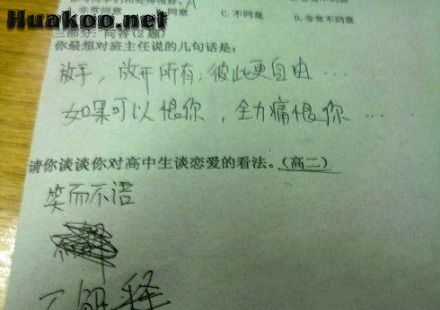 Huakoo.net
C. 不同意
三部分：问答(2题)
你最想对班主任说的几句话是：
放手，放开所有，彼此更自由…
如果可以恨你，全力痛恨你…
请你谈谈你对高中生谈恋爱的看法。(高二)
笑而不语
不解释
Huakoo.net